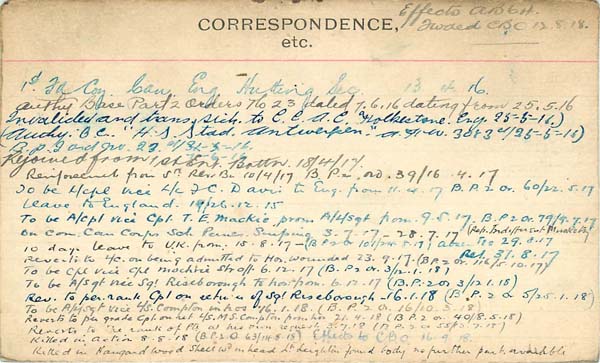 Effects A.B.64.
CORRESPONDENCE, Fwded CBC 12.8.18.
etc.
1st Fd Coy. Can. Eng. Hunting Sec. 13 4 16.
Authy Base Part 2 Orders No 23 dated 7.6.16 dating from 25.5.16
Invalided and trans. sick to C.C.A.C. Folkestone. Eng. 25-5-16.)
Authy. O.C. "H.S. Stad. Antwerpen."
Rejoined from 1st Ent. Battn. 18/4/17.
Reinforcement from 5th Res. Bn 10/4/17 B.P.2. no. 39/16.4.17
To be L/cpl vice L/c J.C. Davis to Eng. from 11.4.17 B.P.2 Or. 60/22.5.17
Leave to England. 19/26.12.15
To be A/Cpl vice Cpl. T.E. Mackie, prom. A/Sgt from. 9.5.17. B.P.2 Or. 79/9.7.17
On com. Can Corps Sch. Sniping 3-7-17 - 28.7.17
10 days leave to U.K. from. 15.8.17 29.8.17
Ret. 31.8.17
Reverts to L/C. on being admitted to Hos. wounded 23.9.17. (B.P.2 Or. 116/5.10.17)
To be Cpl vice Cpl Mackie 6.12.17 (B.P.2 or. 3/2.1.18)
To be A/Sgt vice Sgt Riseborough to hos. from. 6.12.17 (B.P.2 or 3/2.1.18)
Rev. to per. rank Cpl on return of Sgt Riseborough - 16.1.18 (B.P. 2 0 5/25.1.18)
To be A/Sgt vice Compton in hos 1.18. (B.P.2 Or.
Reverts to pre grade Cpl on Sgt Compton from hos 21.4.18 (B.P.2 or. 40/8.5.18)
Reverts to the rank of Pte at his own request 3.7.18 (B.P.2 0 55/2.7.18)
Killed in action 8-8-18 (B.P.2.O 63/14.8.18) Effects to CBO 16-9-18.
Killed in Hangard Wood Shell wd in head Lt Leighton found body no further part. available